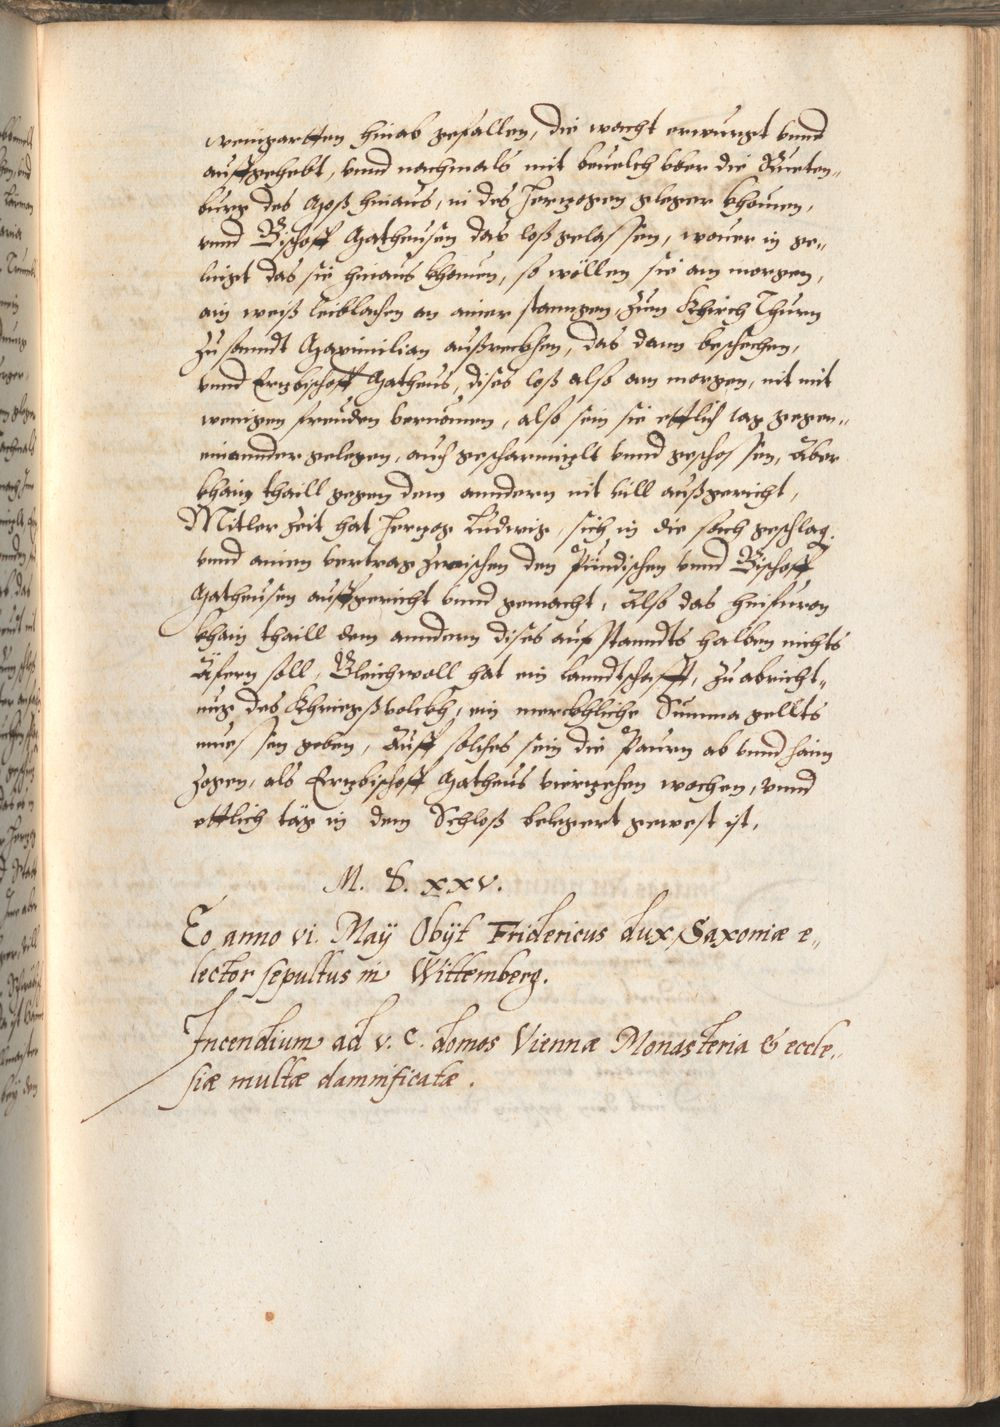 weingartten hinab gefallen, die wacht erwürgt vnnd
auffgehebt, vnnd nachmals mit beuelch vber die Rueten„
burg des Moß hinaus, in des Herzogen gleger khomen,
vnnd Bischoff Matheusen das loß gelassen, wouer in ge„
lingt das sie hinaus khomen, so wöllen sie am morgen,
ain weiß Leiblachen an ainer stanngen, zum Khirch Thurn
zu sanndt Maximilian außreckhen, das dann beschechen,
vnnd Erzbischoff Matheus, dises loß also am morgen, nit mit
wenigen freuden vernomen, also sein sie ettlich tag gegen„
einannder gelegen, auch gescharmizlt vnnd geschossen, Aber
khain thaill gegen dem anndern nit vill außgericht,
Mitler zeit hat Herzog Ludwig, sich in die sach geschlag.
vnnd ainen vertrag zwischen den Pündischen vnnd Bischoff
Matheusen auffgericht vnnd gemacht, Also das hinfuran
khain thaill dem anndern dises aufstanndts halben nichts
Äfern soll, Gleichwoll hat ein lanndtschafft, zu abricht„
ung des Khriegßvolckh, ein merckhliche Summa gellts
muessen geben, Auff solches sein die Paurn ab vnnd haim
zogen, als Erzbischoff Matheus vierzehen wochen, vnnd
ettlich täg in dem Schloß belegert gewest ist,
M. D. xxv.
Eo anno vi. Maÿ Obÿt Fridericus dux Saxoniæ e„
lector sepultus in Wittemberg.
Incendium ad v. c. domos Viennæ Monasteria & eccle„
siæ multæ damnificatæ.